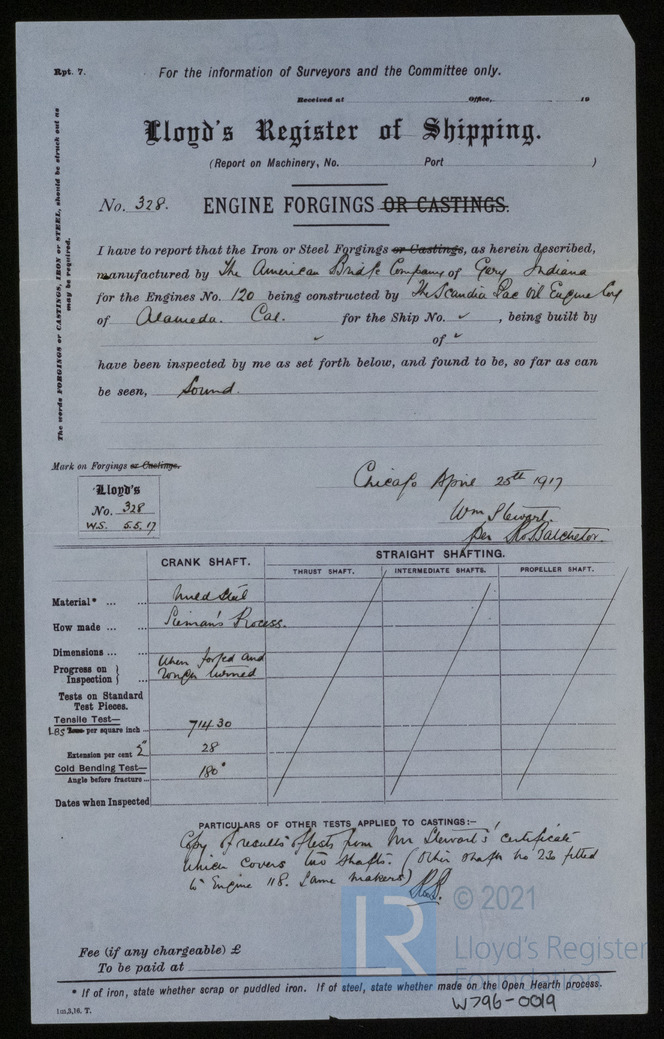 Rpt. 7.
For the information of Surveyors and the Committee only.
Received at Office, 19
Lloyd's Register of Shipping.
(Report on Machinery, No. Port )
No. 328. ENGINE FORGINGS OR CASTINGS.
The words FORGINGS or CASTINGS, IRON or STEEL, should be struck out as
may be required.
I have to report that the Iron or Steel Forgings or Castings, as herein described,
manufactured by The American Bridge Company of Gary Indiana
for the Engines No. 120 being constructed by The Scandia Pac Oil Engine Corp
of Alameda. Cal. for the Ship No. ✓ , being built by
✓ of ✓
have been inspected by me as set forth below, and found to be, so far as can
be seen, Sound.
Mark on Forgings or Castings.
Lloyd's
No. 328
W.S. 5.5.17
Chicago April 25th 1917
Wm Stewart.
per Batchelor.
CRANK SHAFT.
STRAIGHT SHAFTING.
THRUST SHAFT. INTERMEDIATE SHAFTS. PROPELLER SHAFT.
Material* ... ... Mild Steel
How made ... ... Sieman's Process.
Dimensions ... ...
Progress on Inspection } ... When forged and
rough turned
Tests on Standard
Test Pieces.
Tensile Test—
LBS Tons per square inch ... 71430
Extension per cent 2" 28
Cold Bending Test—
Angle before fracture ... 180°
Dates when Inspected
PARTICULARS OF OTHER TESTS APPLIED TO CASTINGS:—
Copy of results of tests from Mr Stewart's certificate
which covers two shafts. (Other shaft no fitted
to Engine 118. Same makers)
© 2021
LR
Lloyd's Register
Foundation
Fee (if any chargeable) £
To be paid at
* If of iron, state whether scrap or puddled iron. If of steel, state whether made on the Open Hearth process.
1m,3,16. T.
W796-0019